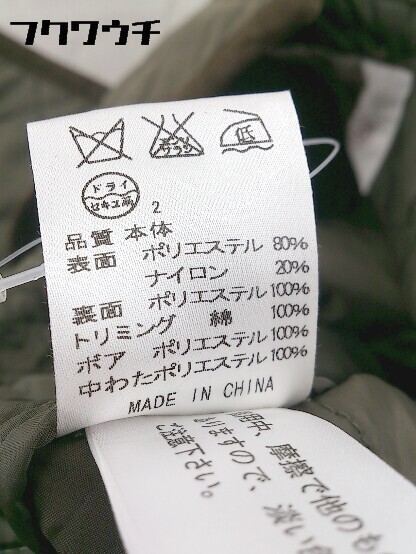 フクワウチ
エンソサラシ
低
ドライ
セキユ系
2
品質 本体
表面 ポリエステル 80%
ナイロン 20%
裏面 ポリエステル 100%
トリミング 綿 100%
ボア ポリエステル 100%
中わた ポリエステル 100%
MADE IN CHINA
用中、摩擦で他のも
りますので、淡い
ご注意下さい。